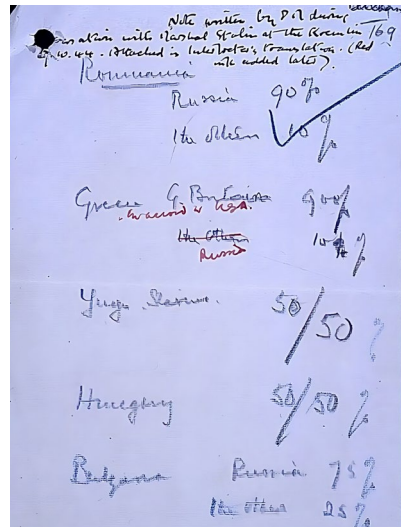 Note written by P.M during
conversation with Marshal Stalin at the Kremlin 169
9.10.44. Attached is Interpreter's translation. (Red
ink added later).
Roumania
Russia 90%
The others 10%
Greece G. Britain 90%
in accord w USA.
The others 10%
Russia
Yugo. Slavia. 50/50 %
Hungary 50/50 %
Bulgaria Russia 75%
The others 25%